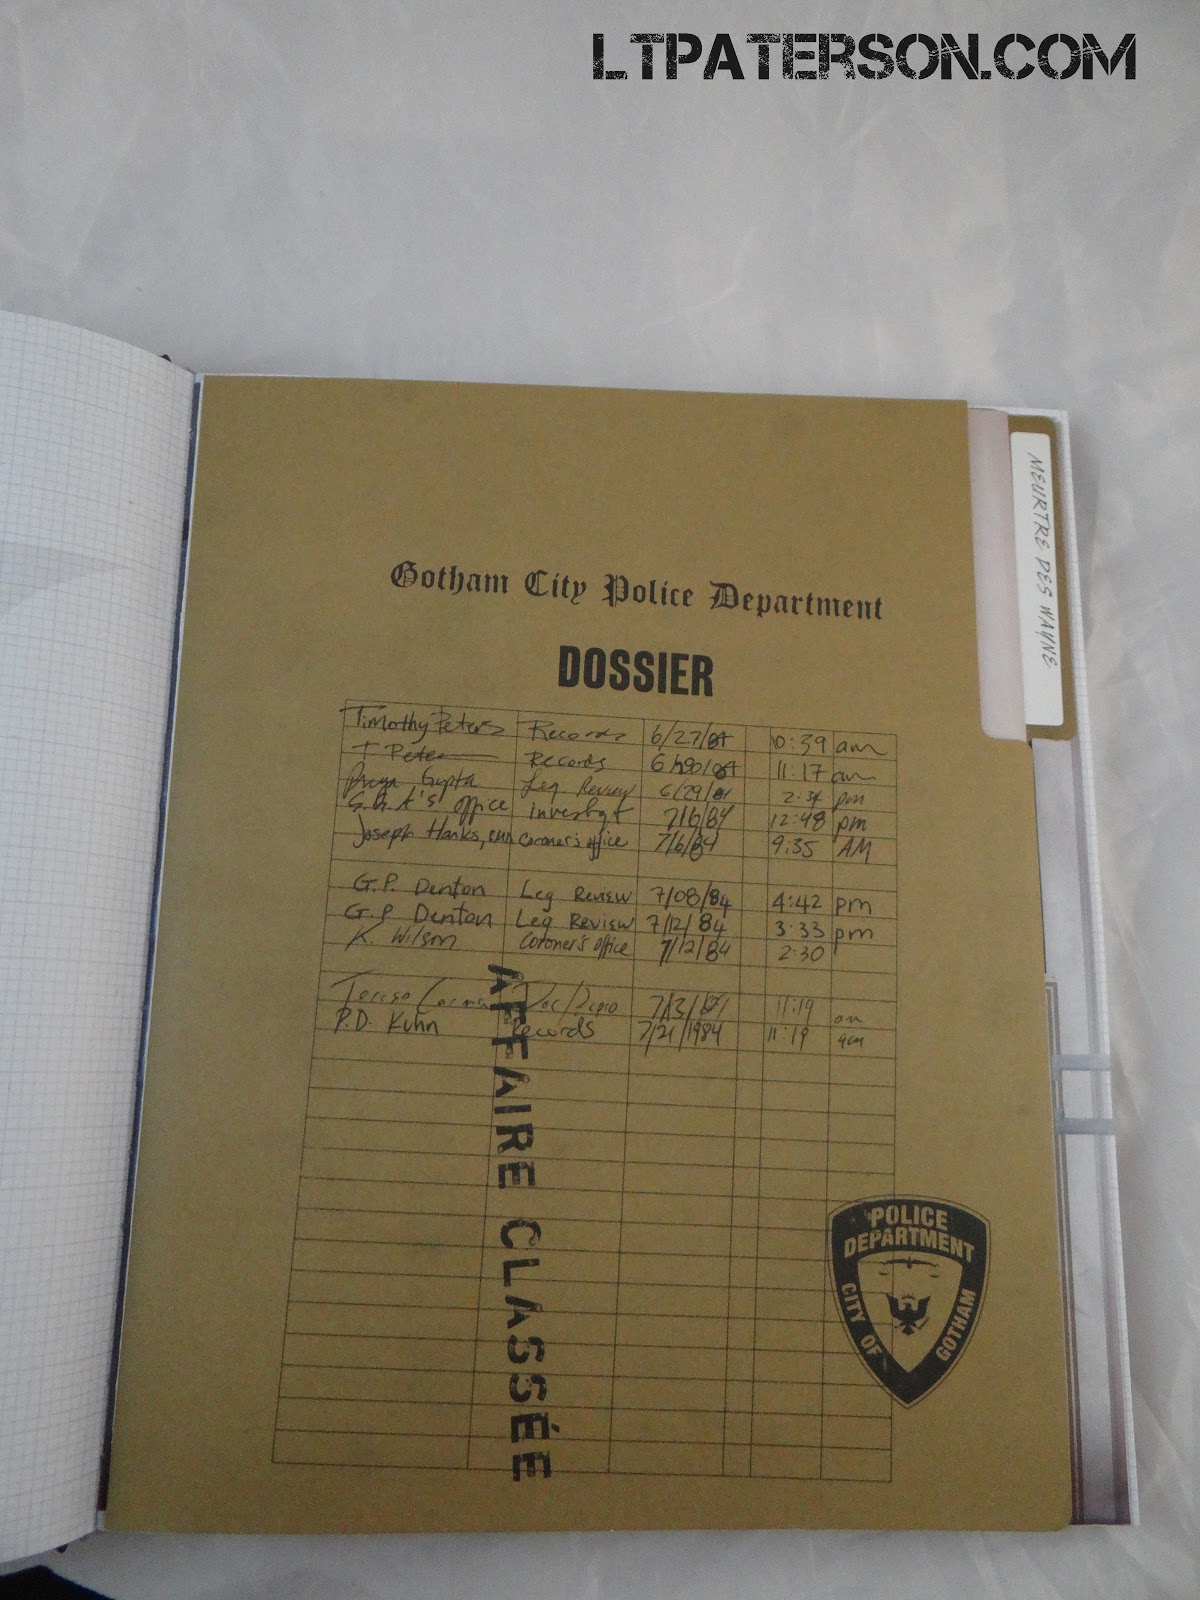 LTPATERSON.COM
MEURTRE DES WAYNE
Gotham City Police Department
DOSSIER
Timothy Peters Records 6/27/84 10:39 am
T Peter Records 6/ 11:17 am
Gupta Leg. Review 6/29/84 2:34 pm
office investigt 7/6/84 12:48 pm
Joseph Hanks, Coroner's office 7/6/84 9:35 AM
G.P. Denton Leg Review 7/08/84 4:42 pm
G.P Denton Leg Review 7/12/84 3:33 pm
K. Wilson Coroner's office 7/12/84 2:30
11:19
P.D. Kuhn Records 7/21/1984 11:19 am
AFFAIRE CLASSÉE
POLICE
DEPARTMENT
CITY OF GOTHAM